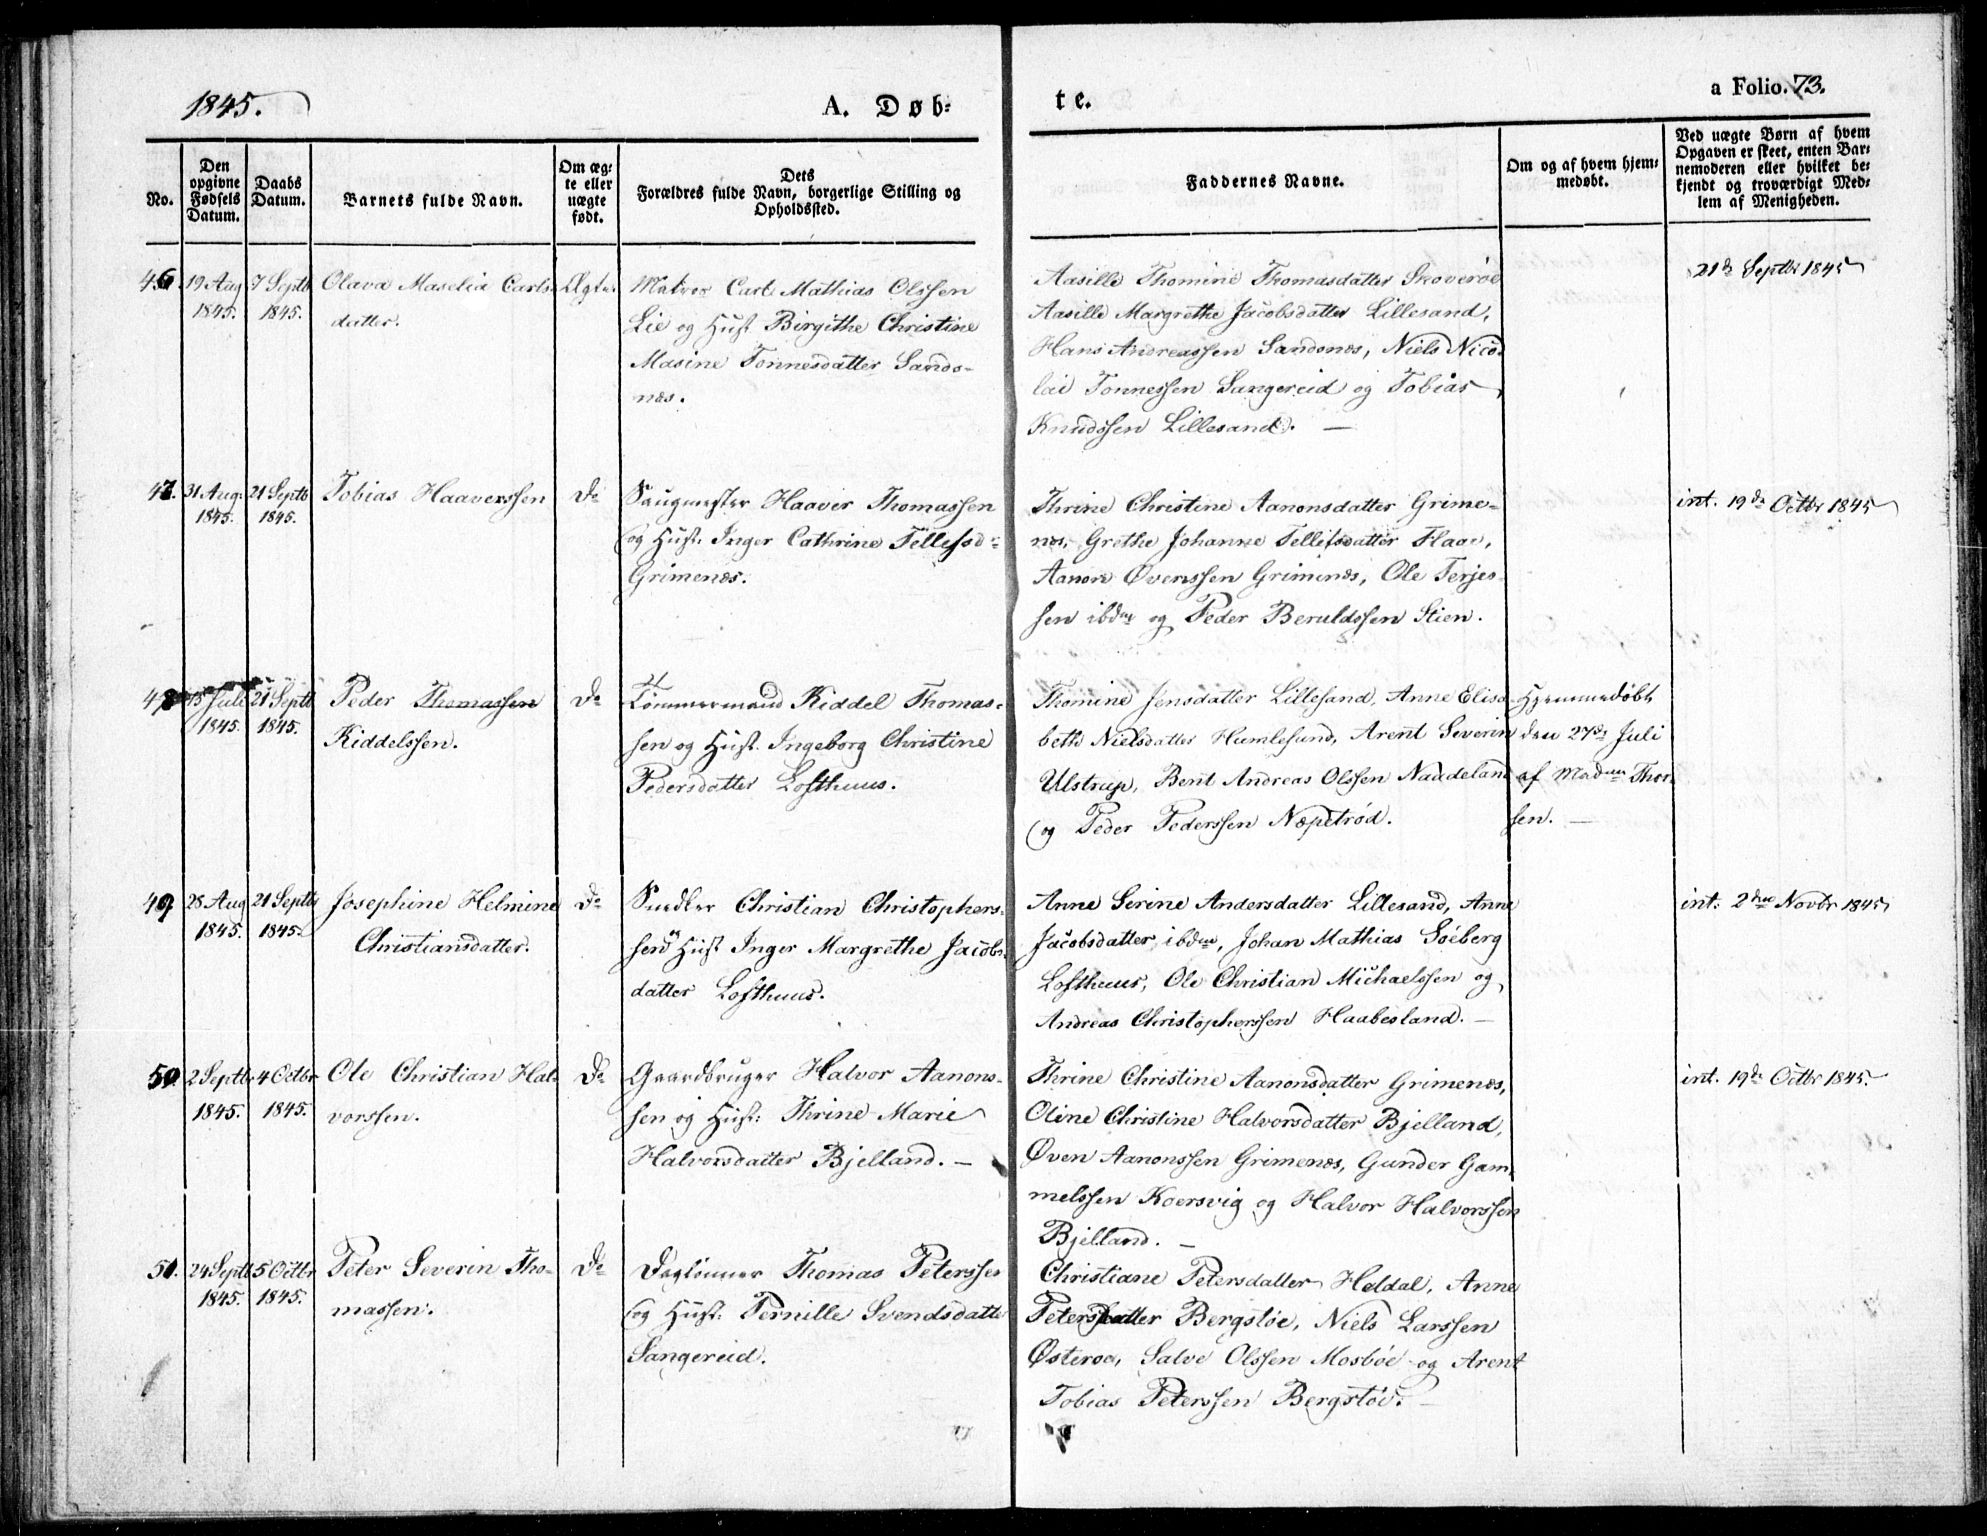 1845.
A. Døb-
te.
a Folio. 73.
No.
Den
opgivne
Fødsels
Datum.
Daabs
Datum.
Barnets fulde Navn.
Om æg-
te eller
uægte
født.
Dets
Forældres fulde Navn, borgerlige Stilling og
Opholdssted.
Faddernes Navne.
Om og af hvem hjem-
medøbt.
Ved uægte Børn af hvem
Opgaven er skeet, enten Bar-
nemoderen eller hvilket be-
kjendt og troværdigt Med-
lem af Menigheden.
46. 19 Aug 7 Septb Olava Maselia Carls- Ægte
1845. 1845. datter.
Matros Carl Mathias Olssen
Lie og Hust Birgithe Christine
Masine Tønnesdatter Sando-
næs.
Aasille Thomine Thomasdatter Skoverøe
Aasille Margrethe Jacobsdatter Lillesand,
Hans Andreassen Sandonæs, Niels Nico-
lai Tønnessen Sangereid og Tobias
Knudssen Lillesand. —
21de Septbr 1845
47. 31 Aug. 21 Septb Tobias Haaverssen Do
1845. 1845.
Saugmester Haaver Thomassen
og Hust. Inger Cathrine Tellefsd-
Grimenæs.
Thrine Christine Aanonsdatter Grime-
næs, Grethe Johanne Tellefsdatter Flaae,
Aanon Øvenssen Grimenæs, Ole Terjes-
sen ibdm og Peder Beruldssen Stien.
int. 19de Octbr 1845
48 15 Juli 21 Septb Peder Thomassen Do
1845. 1845. Kiddelssen.
Tømmermand Kiddel Thomas-
sen og Hust. Ingeborg Christine
Pedersdatter Lofthuus.
Thomine Jensdatter Lillesand, Anne Elisa-
beth Nielsdatter Humlesund, Arent Severin
Ulstrup, Bent Andreas Olssen Naadeland
og Peder Pederssen Næpetrød.
Hjemmedøbt
den 27de Juli
af Madme Thor-
sen. —
49 28 Aug 21 Septb Josephine Helmine Do
1845. 1845. Christiansdatter.
Snedker Christian Christophers-
sen og Hust Inger Margrethe Jacobs-
datter Lofthuus.
Anne Serine Andersdatter Lillesand, Anne
Jacobsdatter ibdm, Johan Mathias Søeberg
Lofthuus, Ole Christian Michaelssen og
Andreas Christopherssen Haabesland. —
int. 2den Novbr 1845
50. 2 Septbr 4 Octbr Ole Christian Hal- Do
1845. 1845. vorssen.
Gaardbruger Halvor Aanons-
sen og Hust: Thrine Marie
Halvorsdatter Bjelland. —
Thrine Christine Aanonsdatter Grimenæs,
Oline Christine Halvorsdatter Bjelland,
Øven Aanonssen Grimenæs, Gunder Gam-
melssen Koersvig og Halvor Halvorssen
Bjelland. —
int. 19de Octbr 1845.
51. 24 Septb 5 Octbr Peter Severin Tho- Do
1845. 1845. massen.
Daglønner Thomas Peterssen
og Hust: Pernille Svendsdatter
Sangereid.
Christiane Petersdatter Heldal, Anne
Petersdatter Bergstøe, Niels Larssen
Østerøe, Salve Olssen Mosbøe og Arent
Tobias Peterssen Bergstøe. —